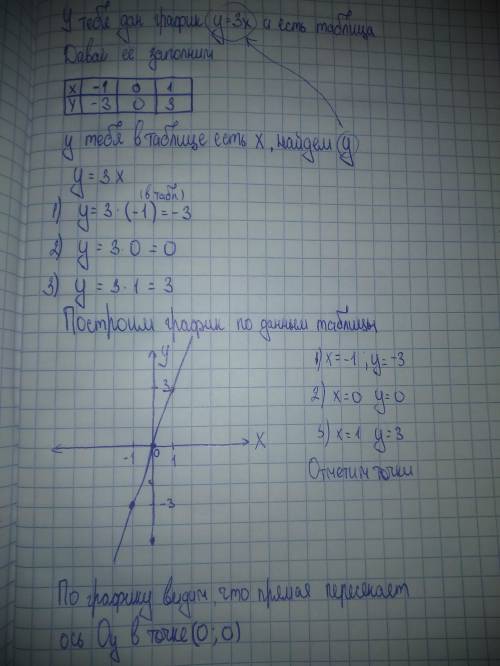 У тебя дан график y=3x и есть таблица
Давай её заполним
X -1 0 1
Y -3 0 3
у тебя в таблице есть x, найдем y
y = 3x
(в табл)
1) y = 3 · (-1) = -3
2) y = 3 · 0 = 0
3) y = 3 · 1 = 3
Построим график по данным таблицы
y
3
1) x = -1, y = -3
2) x = 0 y = 0
X
-1 0 1
3) x = 1 y = 3
Отметим точки
-3
По графику видим, что прямая пересекает
ось Oy в точке (0; 0)